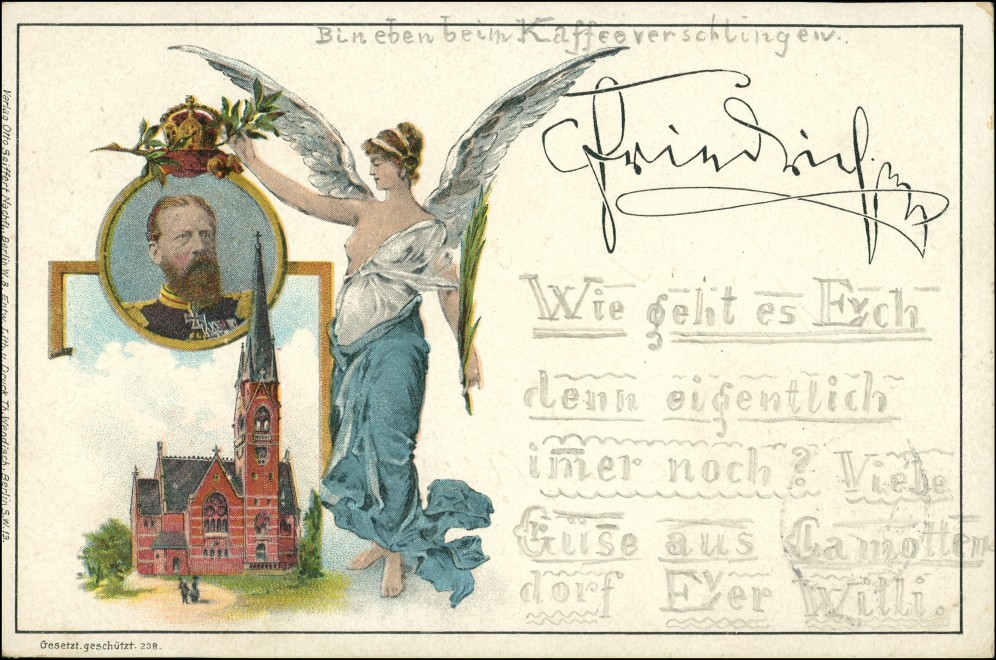 Bin eben beim Kaffeeverschlingen.
Friedrich
Wie geht es Eych
denn eigentlich
im̅er noch? Viele
Güse aus Camotten-
dorf Eyer Willi.
Verlag Otto Seiffert Nachfl. Berlin W.8. Entw. Lith. u. Druck Th. Wendisch, Berlin S.W.13.
Gesetzt. geschützt. 238.